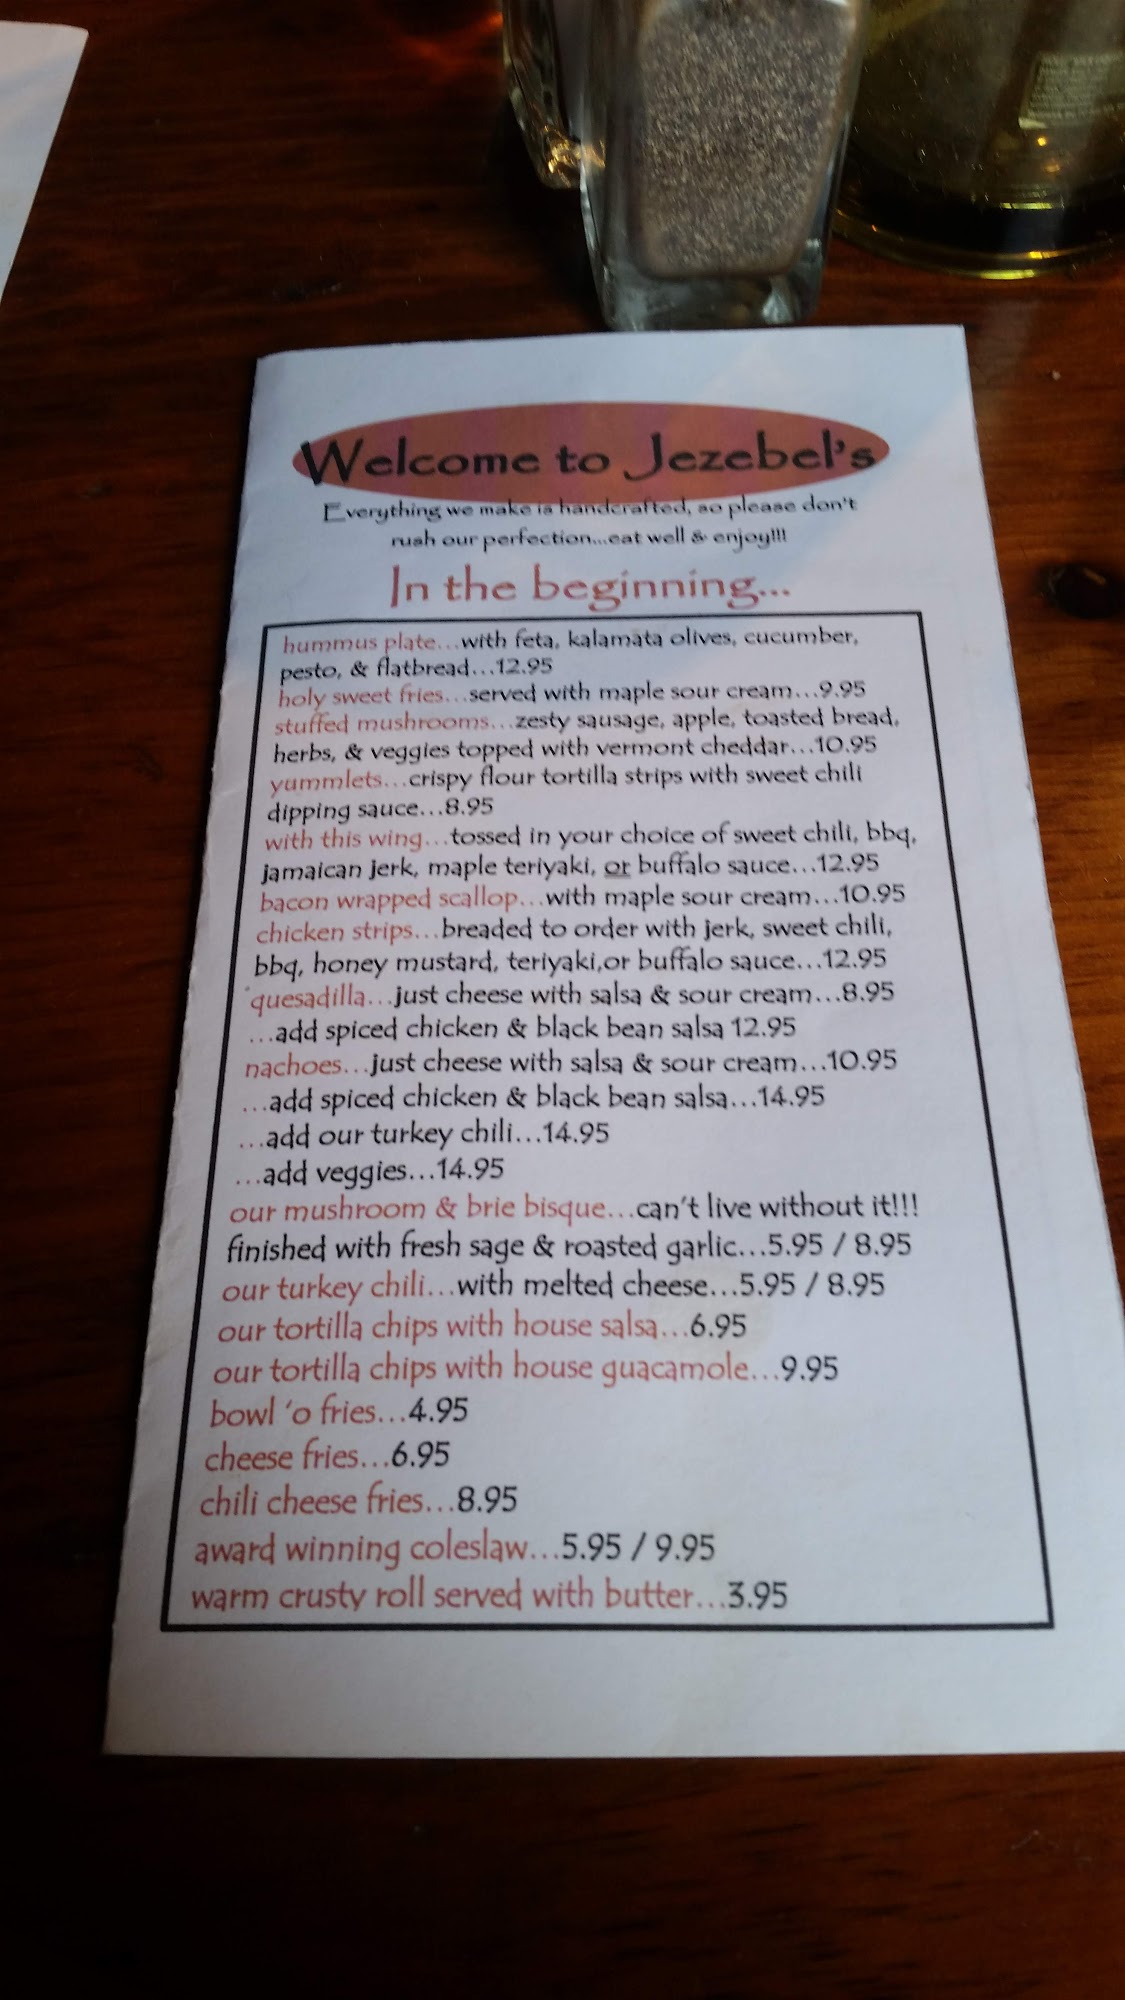 Welcome to Jezebel's
Everything we make is handcrafted, so please don't
rush our perfection...eat well & enjoy!!!
In the beginning...
hummus plate...with feta, kalamata olives, cucumber,
pesto, & flatbread...12.95
holy sweet fries...served with maple sour cream...9.95
stuffed mushrooms...zesty sausage, apple, toasted bread,
herbs, & veggies topped with vermont cheddar...10.95
yummlets...crispy flour tortilla strips with sweet chili
dipping sauce...8.95
with this wing...tossed in your choice of sweet chili, bbq,
jamaican jerk, maple teriyaki, or buffalo sauce...12.95
bacon wrapped scallop...with maple sour cream...10.95
chicken strips...breaded to order with jerk, sweet chili,
bbq, honey mustard, teriyaki,or buffalo sauce...12.95
quesadilla...just cheese with salsa & sour cream...8.95
...add spiced chicken & black bean salsa 12.95
nachoes...just cheese with salsa & sour cream...10.95
...add spiced chicken & black bean salsa...14.95
...add our turkey chili...14.95
...add veggies...14.95
our mushroom & brie bisque...can't live without it!!!
finished with fresh sage & roasted garlic...5.95 / 8.95
our turkey chili...with melted cheese...5.95 / 8.95
our tortilla chips with house salsa...6.95
our tortilla chips with house guacamole...9.95
bowl 'o fries...4.95
cheese fries...6.95
chili cheese fries...8.95
award winning coleslaw...5.95 / 9.95
warm crusty roll served with butter...3.95